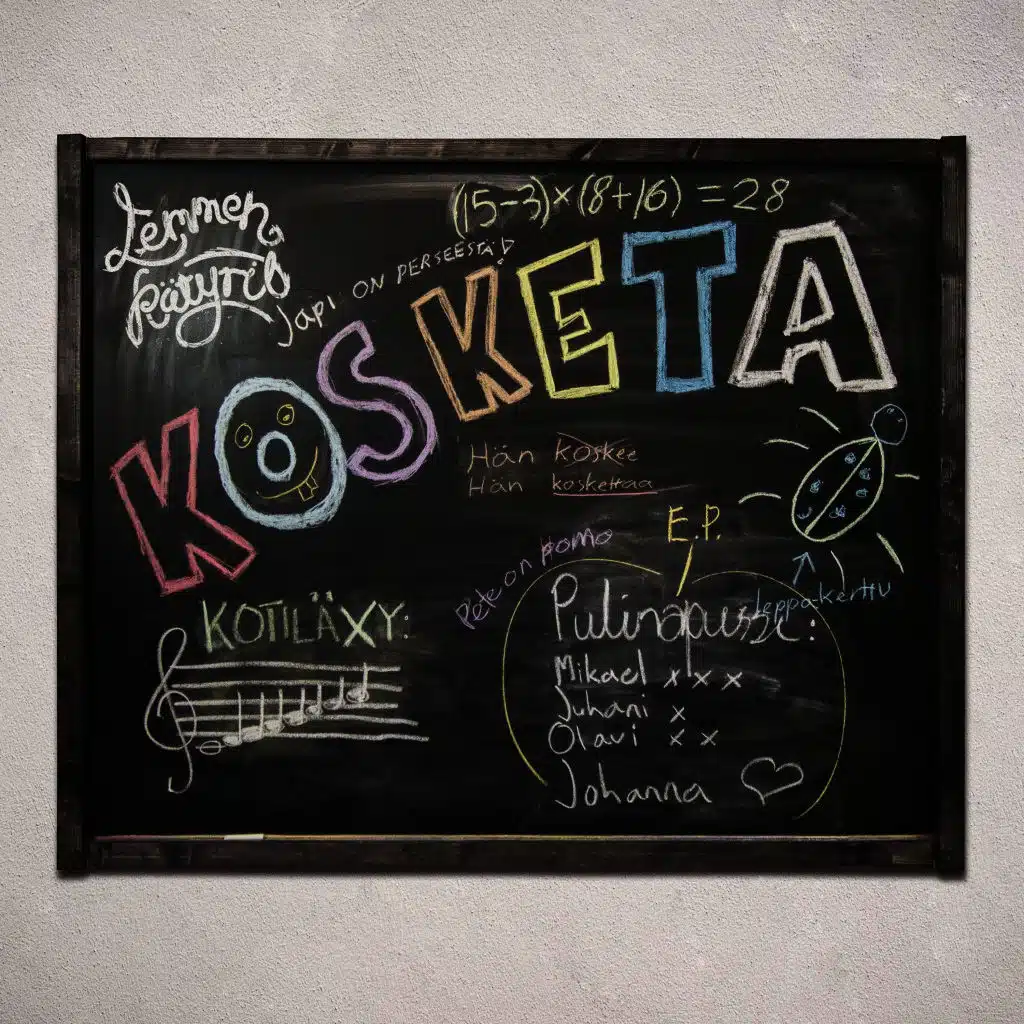 Lemmen
Pätyrit
(15-3)×(8+16) = 28
Japi ON PERSEESTÄ!
KOSKETA
Hän koskee
Hän koskettaa
E.P.
Pete on pomo
leppäkerttu
KOTILÄXY:
Pulinapussi:
Mikael x x x
Juhani x
Olavi x x
Johanna